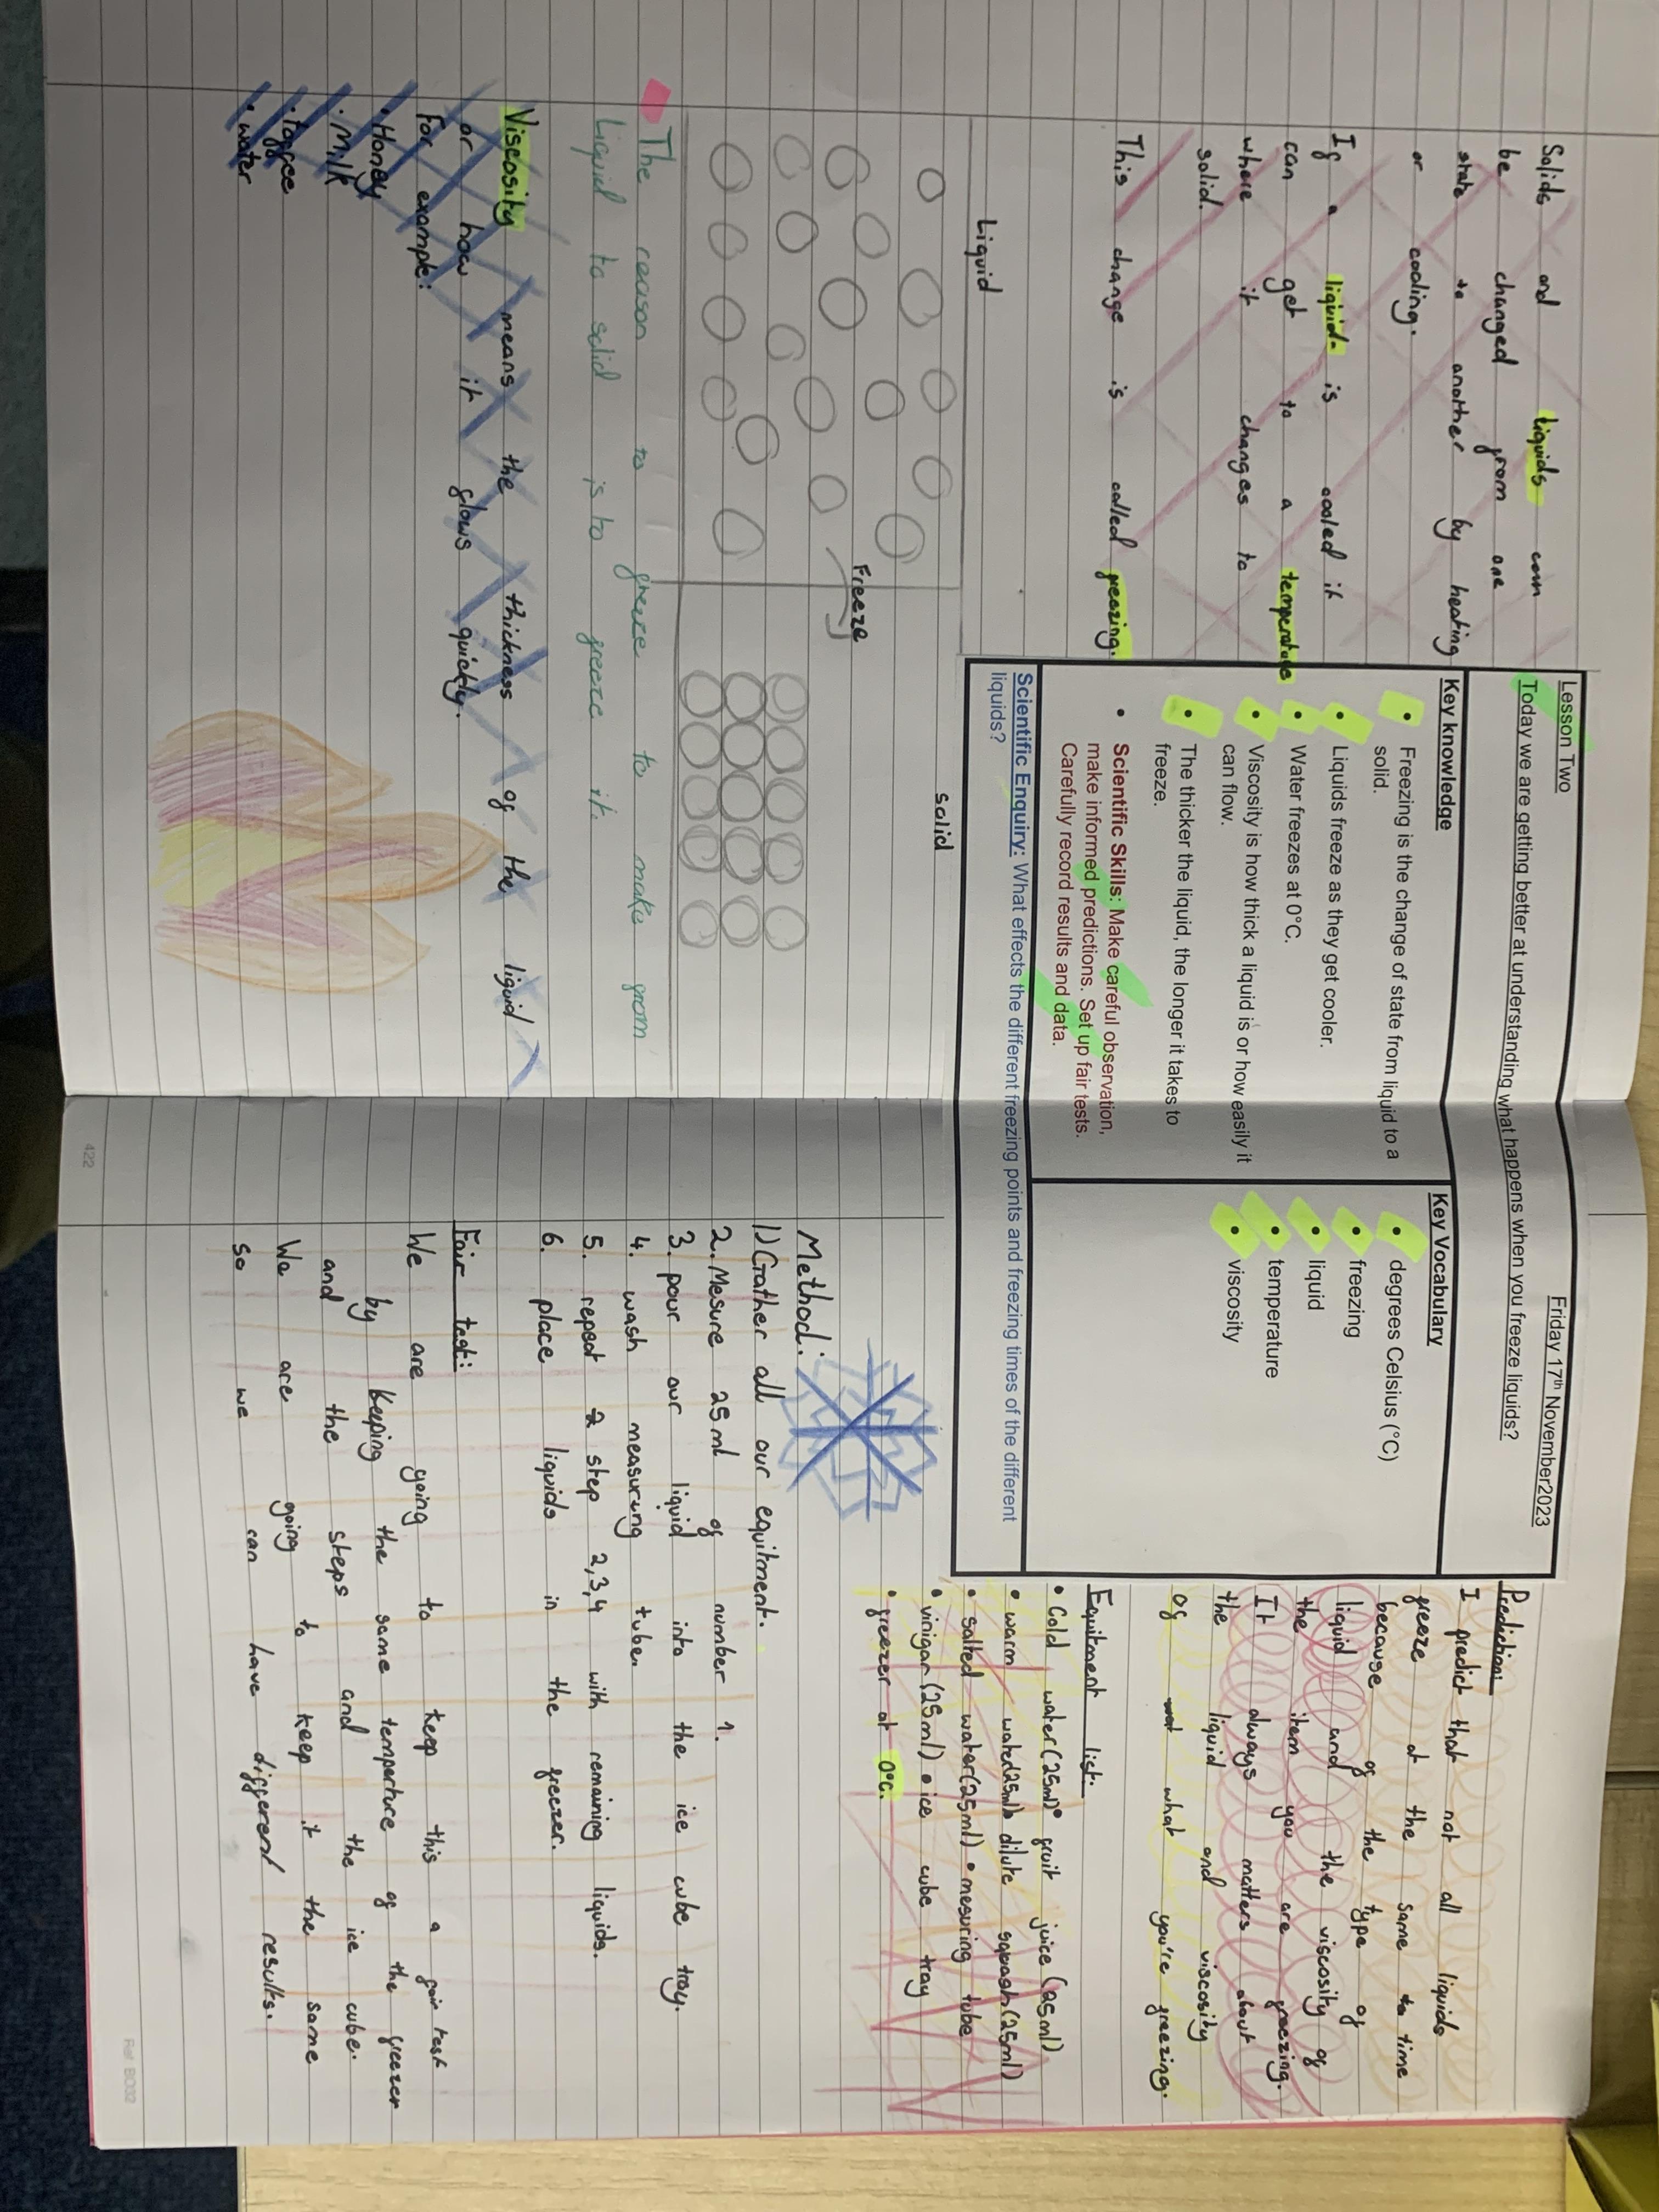 Lesson Two
Friday 17th November2023
Today we are getting better at understanding what happens when you freeze liquids?
Key knowledge
• Freezing is the change of state from liquid to a
solid.
• Liquids freeze as they get cooler.
• Water freezes at 0°C.
• Viscosity is how thick a liquid is or how easily it
can flow.
• The thicker the liquid, the longer it takes to
freeze.
• Scientific Skills: Make careful observation,
make informed predictions. Set up fair tests.
Carefully record results and data.
Key Vocabulary
• degrees Celsius (°C)
• freezing
• liquid
• temperature
• viscosity
Scientific Enquiry: What effects the different freezing points and freezing times of the different
liquids?
Solids and liquids can
be changed from one
state to another by heating
or cooling.
If a liquid is cooled it
can get to a temperature
where it changes to
solid.
This change is called freezing.
Liquid
solid
Freeze
The reason to freeze to make from
Liquid to solid is to freeze it.
Viscosity means the thickness of the liquid
or how it flows quickly.
For example:
• Honey
• Milk
• toffee
• water
Prediction:
I predict that not all liquids
freeze at the same to time
because of the type of
liquid and the viscosity of
the item you are freezing.
It always matters about
the liquid and viscosity
of what you're freezing.
Equitment list:
• Cold water(25ml) • fruit juice (25ml)
• warm water(25ml) • dilute squash(25ml)
• salted water(25ml) • mesuring tube
• vinigar(25ml) • ice cube tray
• freezer at 0°C.
Method:
1) Gather all our equitment.
2. Mesure 25ml of number 1.
3. pour our liquid into the ice cube tray.
4. wash measuring tube.
5. repeat 2 step 2,3,4 with remaining liquids.
6. place liquids in the freezer.
Fair test:
We are going to keep this a fair test
by keeping the same temperture of the freezer
and the steps and the ice cube.
We are going to keep it the same
so we can have different results.
422